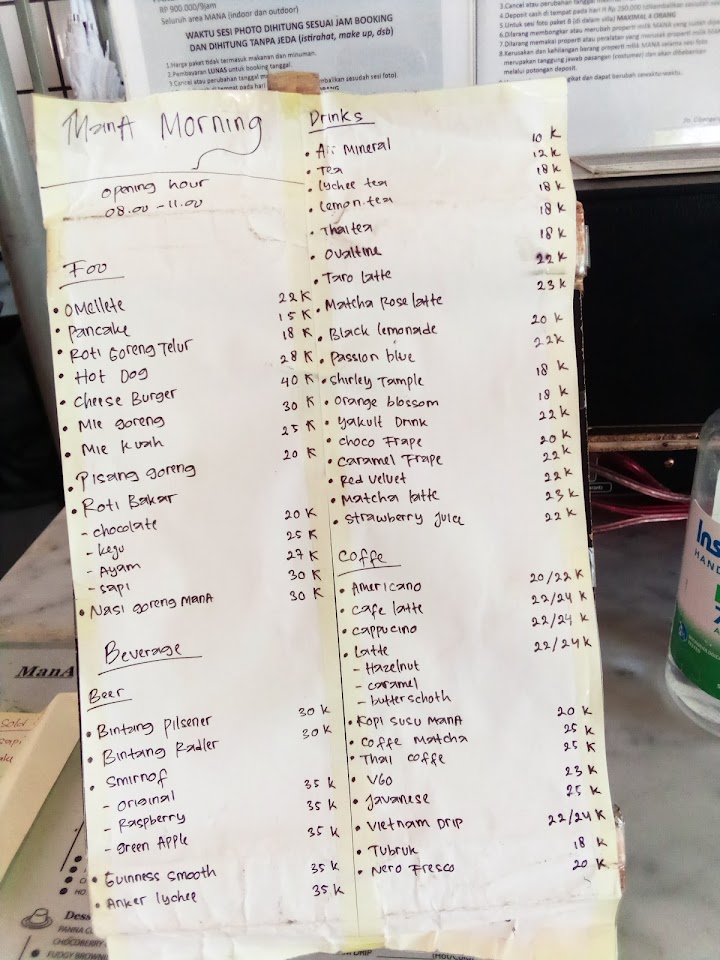 RP 900.000/9jam
Seluruh area MANA (indoor dan outdoor)
WAKTU SESI PHOTO DIHITUNG SESUAI JAM BOOKING
DAN DIHITUNG TANPA JEDA (istirahat, make up, dsb)
1.Harga paket tidak termasuk makanan dan minuman.
2.Pembayaran LUNAS untuk booking tanggal.
3.Cancel atau perubahan tanggal
3.Cancel atau perubahan tanggal
4.Deposit cash di tempat pada hari H Rp 250.000
5.Untuk sesi foto paket B (di dalam villa) MAXIMAL 4 ORANG
6.Dilarang membongkar atau merubah properti milik MANA
7.Dilarang memakai properti atau peralatan yang
8.Kerusakan dan kehilangan barang properti milik MANA selama sesi foto
merupakan tanggung jawab pasangan (costumer) dan akan dibebankan
melalui potongan deposit.
ManA Morning
opening hour
08.00 - 11.00
Foo
• OMellete 22 K
• Pancake 15 K
• Roti Goreng Telur 18 K
• Hot Dog 28 K
• Cheese Burger 40 K
• Mie goreng 30 K
• Mie Kuah 25 K
• Pisang goreng 20 K
• Roti Bakar
- chocolate 20 K
- keju 25 K
- Ayam 27 K
- sapi 30 K
• Nasi goreng MANA 30 K
Beverage
Beer
• Bintang Pilsener 30 K
• Bintang Radler 30 K
• Smirnof
- original 35 K
- Raspberry 35 K
- Green Apple 35 K
• Guinness Smooth 35 K
• Anker lychee 35 K
Drinks
• Air Mineral 10 K
• Tea 12 K
• lychee tea 18 K
• lemon tea 18 K
• Thai tea 18 K
• Ovaltine 18 K
• Taro latte 22 K
• Matcha Rose latte 23 K
• Black lemonade 20 K
• Passion blue 22 K
• Shirley Tample 18 K
• Orange blossom 18 K
• Yakult Drink 22 K
• choco Frape 20 K
• caramel Frape 22 K
• Red velvet 22 K
• Matcha latte 23 K
• Strawberry Juice 22 K
Coffe
• Americano 20/22 K
• Cafe latte 22/24 K
• Cappucino 22/24 K
• Latte 22/24 K
- Hazelnut
- caramel
- butterschoth
• Kopi susu MANA 20 K
• Coffe Matcha 25 K
• Thai coffe 25 K
• V60 23 K
• Javanese 25 K
• Vietnam DRIP 22/24 K
• Tubruk 18 K
• Nero Fresco 20 K
ManA
Sold
Dess
PANNA
CHOCOBERRY
FUDGY BROWNI
DRIP
Ins
HAND